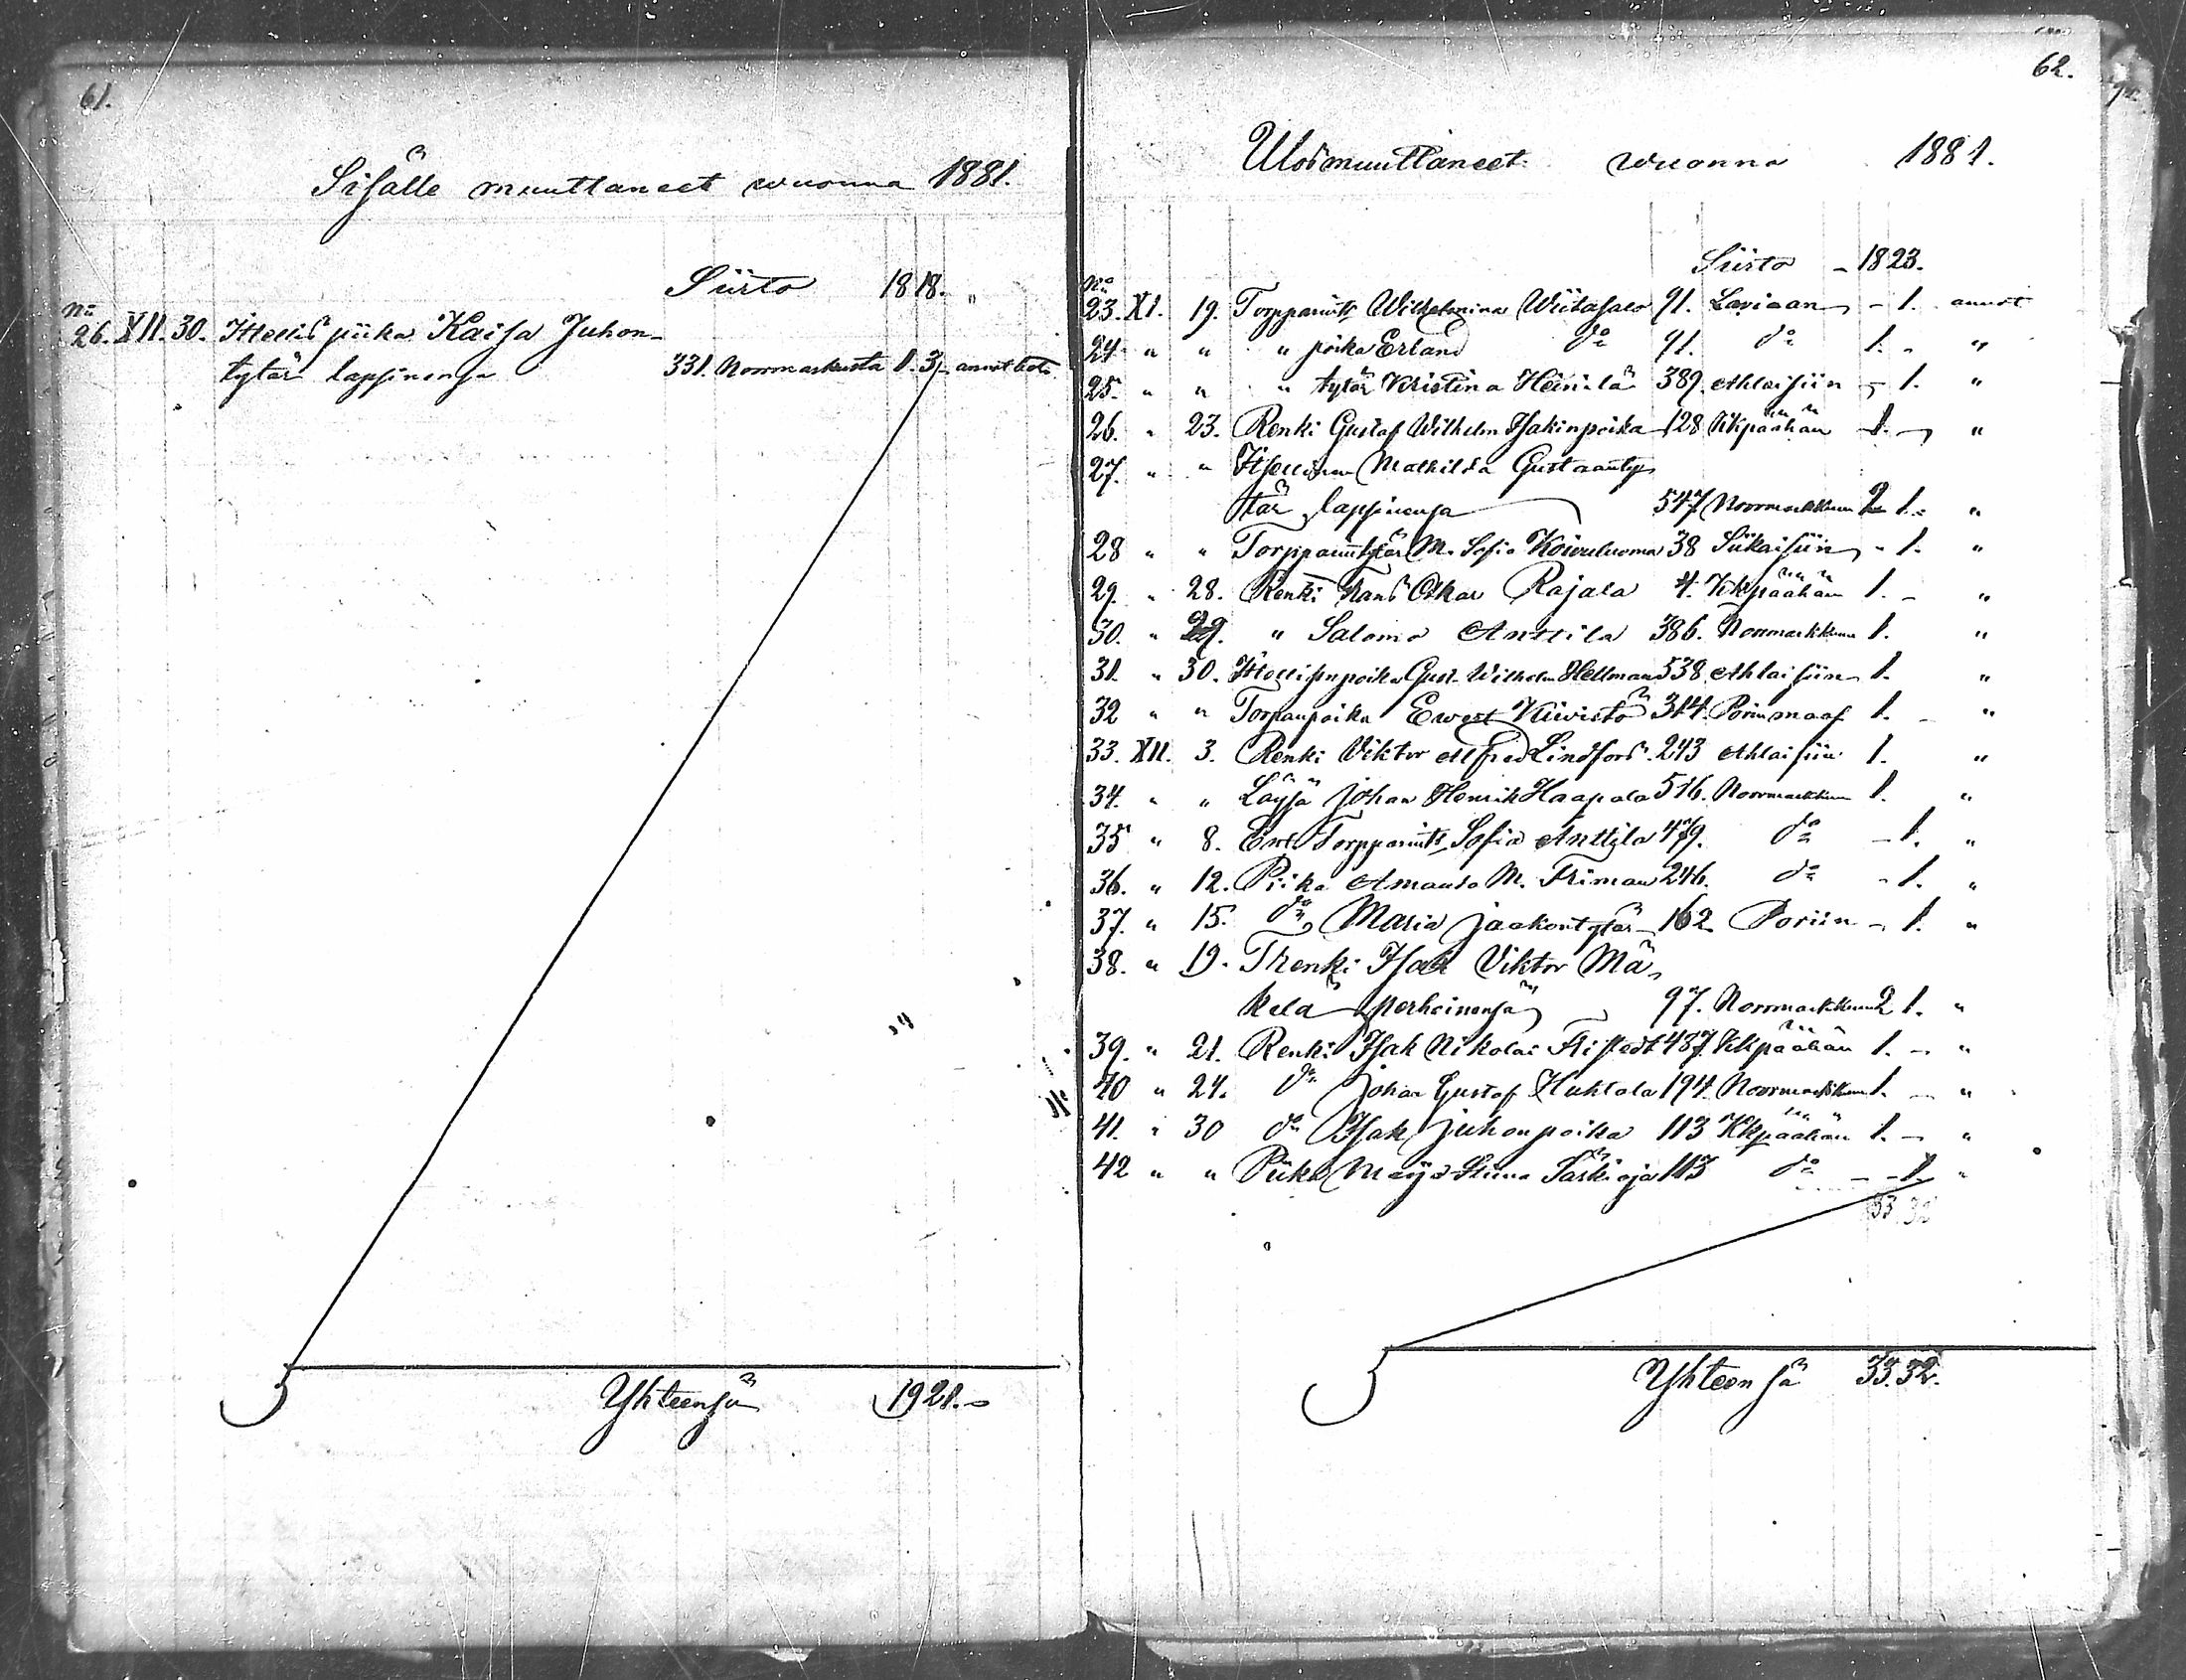 61.
Sisälle muuttaneet wuonna 1881.
Siirto 18 18. "
No
26. XII. 30. Itsellis piika Kaisa Juhon-
tytär lapsinensa 331. Normarkusta 1. 3. annet
Yhteensä 19 21. -
62.
Ulosmuuttaneet wuonna 1881.
Siirto - 18 23.
No
23. XI. 19. Wilhelmina Wiitasalo 91. Laviaan - 1. annet
24 " " " poika Erland do 91. do 1. - "
25. " " " tytär Kristina Heinilä 389. Ahlaisiin - 1. "
26. " 23. Renki Gustaf Wilhelm Isakinpoika 128 Kkpäähän 1. - "
27. " " Itsellinen Mathilda Gustaanty-
tär lapsinensa 547 Norrmarkkuun 2 1. "
28 " " Torpparintytär M. Sofia Koivuluoma 38 Siikaisiin - 1. "
29. " 28. Renki Frans Oskar Rajala 4. Kkpäähän 1. - "
30. " 29. " Salomo Anttila 386. Norrmarkkuun 1. "
31. " 30. Itsellisenpoika Gust. Wilhelm Hellman 538 Ahlaisiin 1. "
32 " " Torpanpoika Ewert Kiiwistö 314. Porinmaas. 1. - "
33. XII. 3. Renki Viktor Alfred Lindfors 243 Ahlaisiin 1. "
34. " " Johan Henrik Haapala 516. Norrmarkkuun 1. "
35 " 8. Ent. Sofia Anttila 479. do - 1. "
36. " 12. Piika Amanda M. Friman 246. do - 1. "
37. " 15. do Maria Jaakontytär 162 Poriin - 1. "
38. " 19. Renki Isak Viktor Mä-
kelä perheinensä 97. Norrmarkkuun 2 1. "
39. " 21. Renki Isak Nikolai 487. Kkpäähän 1. - "
40 " 24. do Johan Gustaf Huhtala 194. Norrmarkkuun 1. - "
41. " 30 do Isak Juhonpoika 113 Kkpäähän 1. - "
42 " " Piika Maija Stiina Särkioja 113 do - - 1. "
33. 32
Yhteensä 33. 32.